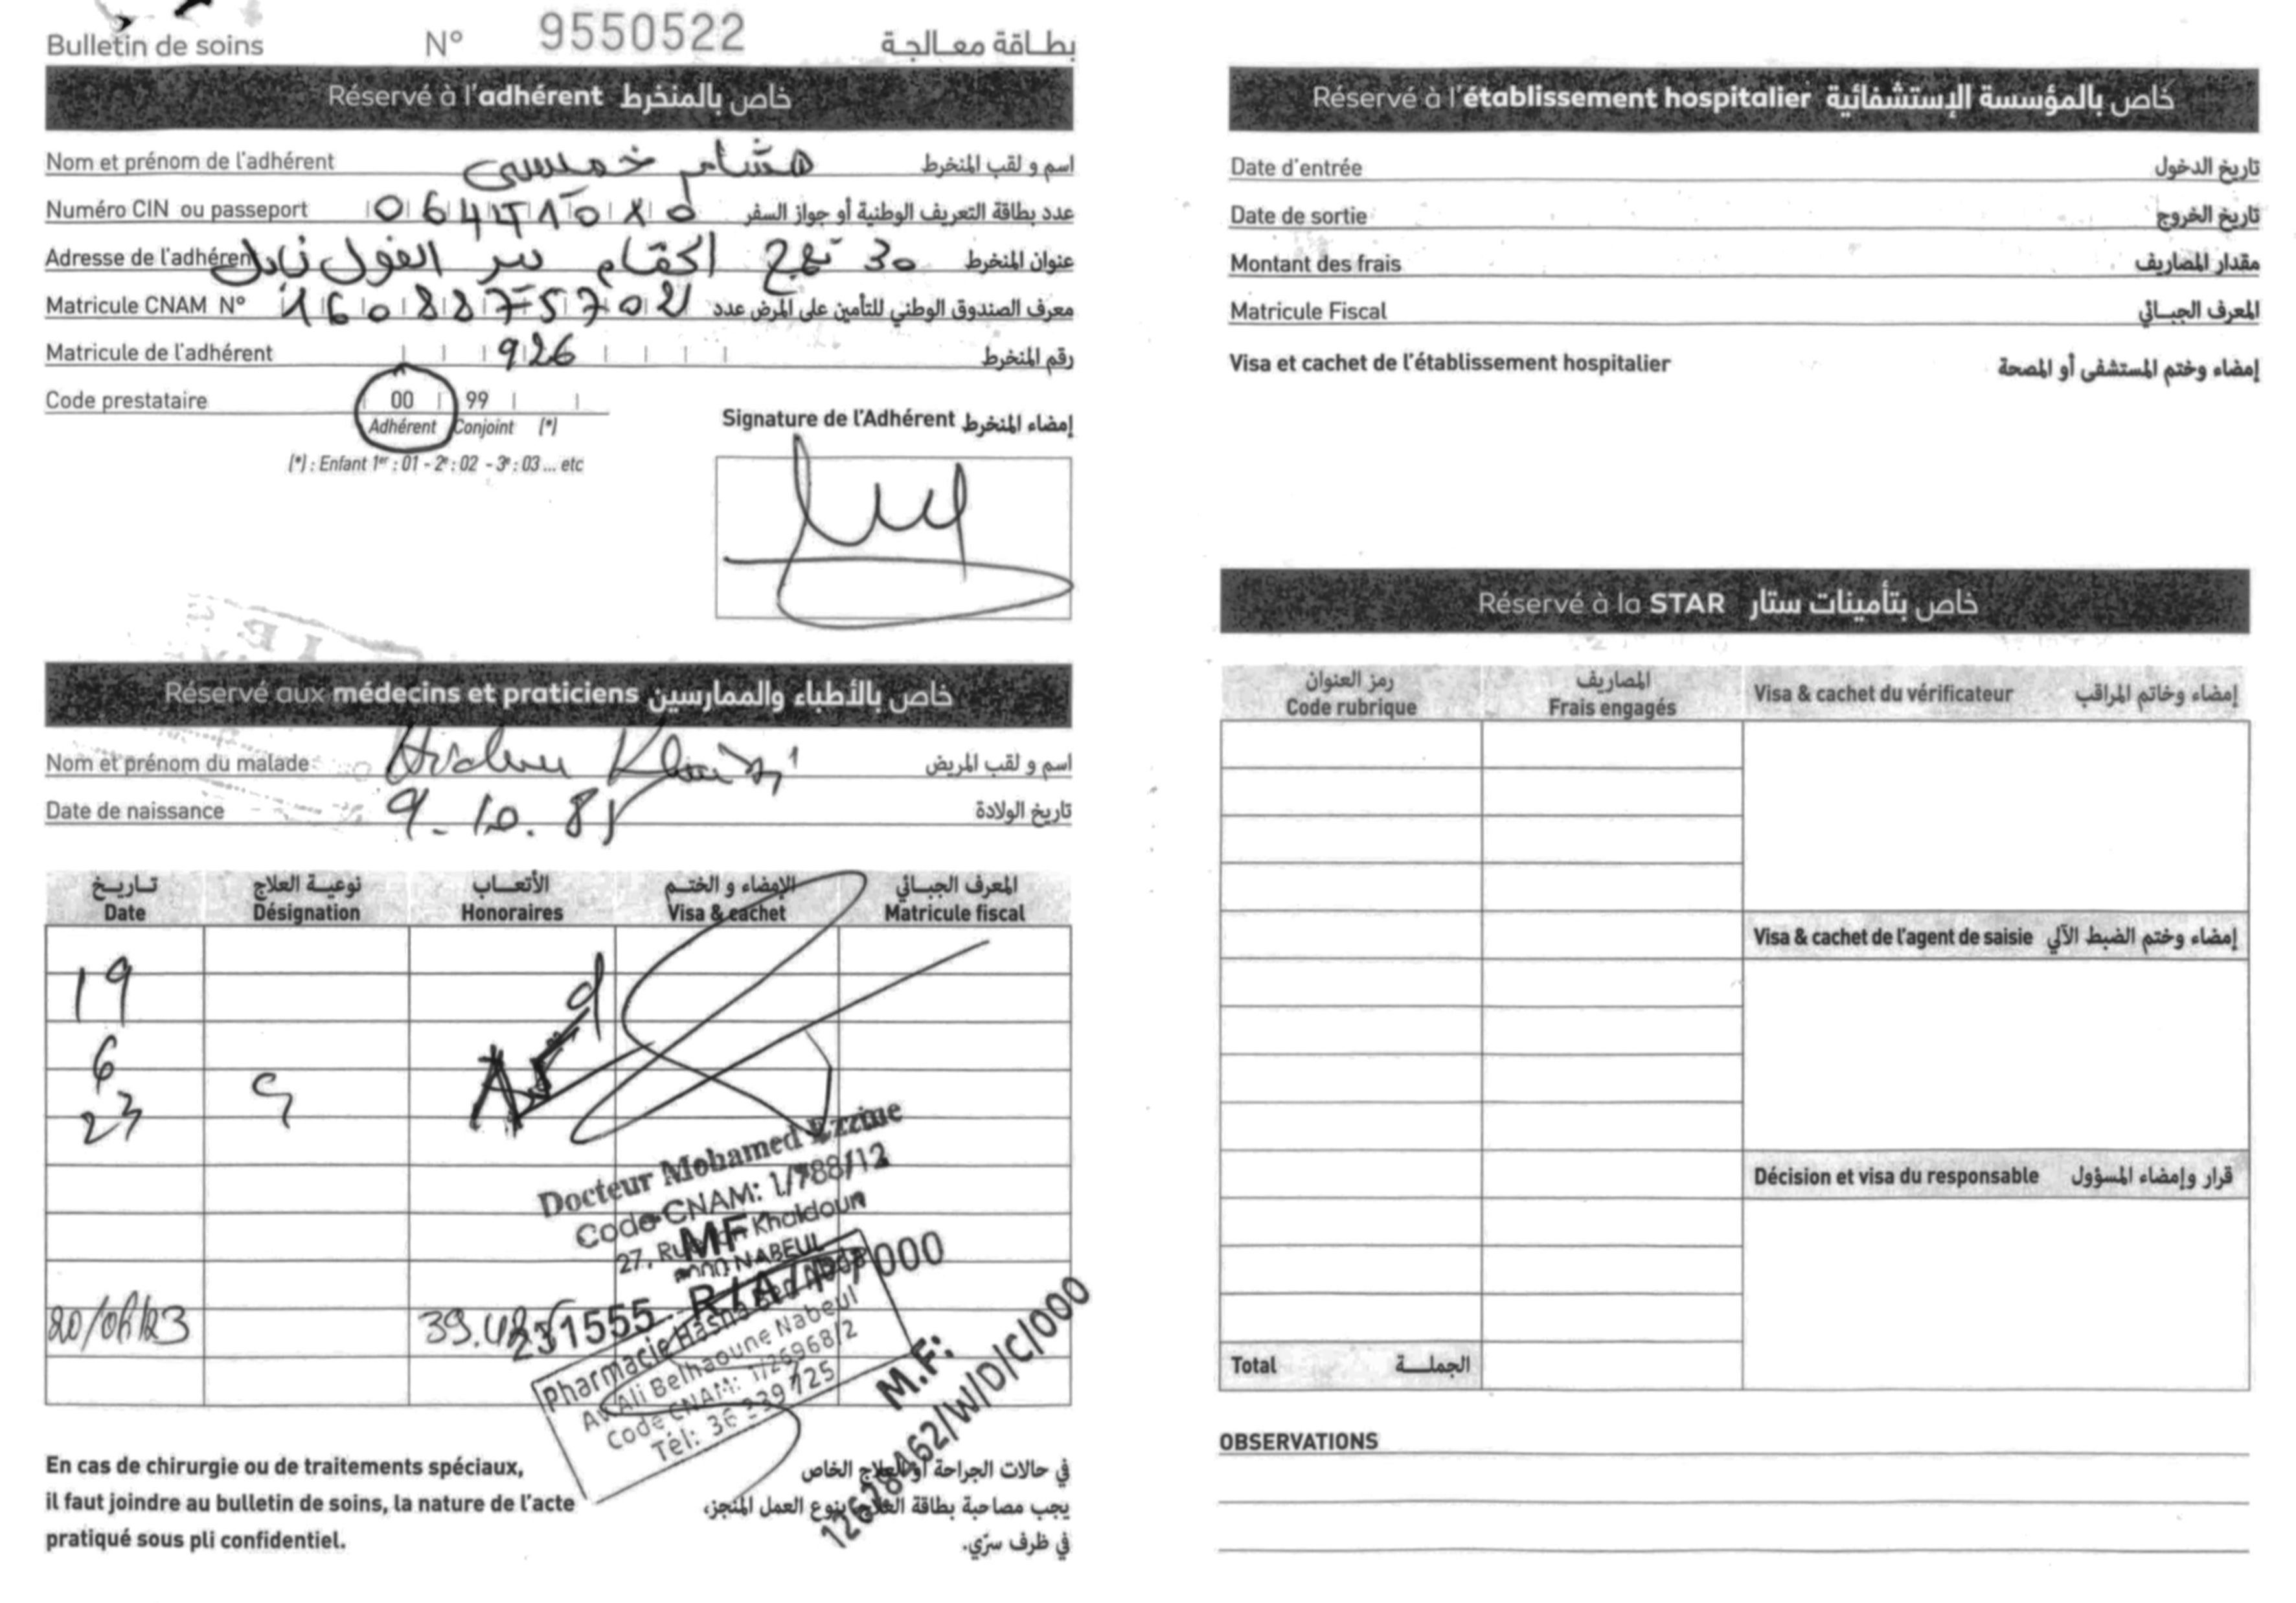 Bulletin de soins N° 9550522 بطاقة معالجة
Réservé à l'adhérent خاص بالمنخرط
Nom et prénom de l'adhérent هشام خميسي اسم و لقب المنخرط
Numéro CIN ou passeport عدد بطاقة التعريف الوطنية أو جواز السفر
Adresse de l'adhérent 30 نهج بئر الفول نابل عنوان المنخرط
Matricule CNAM N° معرف الصندوق الوطني للتأمين على المرض عدد
Matricule de l'adhérent 926 رقم المنخرط
Code prestataire 00 99
Adhérent Conjoint (*)
(*) : Enfant 1er : 01 - 2e : 02 - 3e : 03 ... etc
Signature de l'Adhérent إمضاء المنخرط
Réservé aux médecins et praticiens خاص بالأطباء والممارسين
Nom et prénom du malade اسم و لقب المريض
Date de naissance 9.10.85 تاريخ الولادة
تاريخ نوعية العلاج الأتعاب الإمضاء و الختم المعرف الجبائي
Date Désignation Honoraires Visa & cachet Matricule fiscal
19
6
23
Docteur Mohamed
Code CNAM: 1/788/12
27, Rue Ibn Khaldoun
8000 NABEUL
MF
20/06/23
Pharmacie Hasna Ben
Av Ali Belhaoune Nabeul
Code CNAM: 1/26968/2
Tél: 36 239 725
M.F:
12628462/W/D/C/000
En cas de chirurgie ou de traitements spéciaux,
il faut joindre au bulletin de soins, la nature de l'acte
pratiqué sous pli confidentiel.
في حالات الجراحة أو العلاج الخاص
يجب مصاحبة بطاقة العلاج بنوع العمل المنجز،
في ظرف سرّي.
Réservé à l'établissement hospitalier خاص بالمؤسسة الإستشفائية
Date d'entrée تاريخ الدخول
Date de sortie تاريخ الخروج
Montant des frais مقدار المصاريف
Matricule Fiscal المعرف الجبائي
Visa et cachet de l'établissement hospitalier إمضاء وختم المستشفى أو المصحة
Réservé à la STAR خاص بتأمينات ستار
رمز العنوان المصاريف
Code rubrique Frais engagés Visa & cachet du vérificateur إمضاء وخاتم المراقب
Visa & cachet de l'agent de saisie إمضاء وختم الضبط الآلي
Décision et visa du responsable قرار وإمضاء المسؤول
Total الجملة
OBSERVATIONS